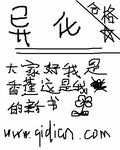 合格
异化
大家好我是
这是我
的新书
www.qidian.com